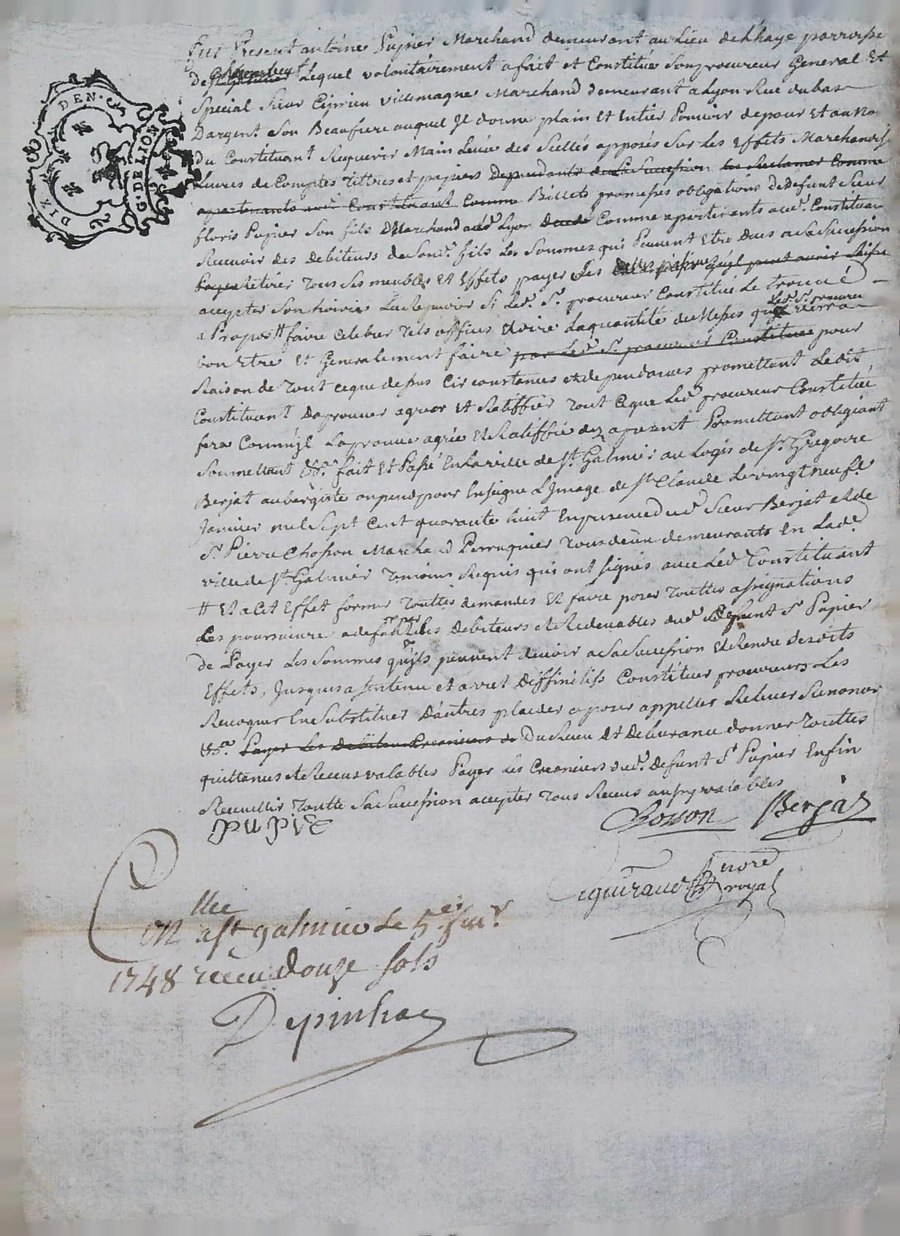 DIX DEN.
G. DE LION
Fut Present antoine Pupier Marchand demeurant au Lieu de Lhaye parroisse
de Lequel volontairement a fait et Constitué Son procureur General Et
Special Sieur Ciprien villemagne Marchand demeurant a Lyon Rue du bas
Dargent Son Beaufrere auquel Je donne plain et Entier Pouvoir de pour Et au No
du Constituant Requerir Main Levée des Scellés apposés Sur Les Effets Marchandis
Livres de Comptes tittres et papiers Dependants de La Succession les Reclamer Comme
apartenants aud. Constituant Comme Billets promesses obligations de Defunt Sieur
floris Pupier Son fils Marchand a Lyon Comme apartenants aud. Constituan
Recevoir des debiteurs de Sond. fils Les Sommes qui Peuvent Etre Dues a Sa Succession
Retirer Tous Ses meubles Et Effets payer Les
accepter Son hoirie La Repudier Si Led. Sr. procureur Constitué Le trouve
a Propos # faire Celebrer tels offices Et dire La quantité de Messes que Led. Sr. procureu verra
bon Etre Et Generalement faire par Led. Sr. procureur Constitué pour
Raison de Tout ceque dessus Circonstances et dependances promettant Ledit
Constituant Daprouver agreer Et Ratiffier Tout Ce que Led. procureur Constitué
fera Comme Il Laprouve agrée Et Ratiffie dez apresent Promettant obligeant
Soumettant &c. fait Et Passé En La ville de St. Galmier au Logis de Sr. Gregoire
Berjat aubergiste ou pend pour Enseigne L'Image de St. Claude Le vingt neuf.
Janvier mil Sept Cent quarante huit En presence dud. Sieur Berjat et de
Sr. Pierre Chosson Marchand Perruquier Tous deux demeurants En Lad.
ville de St. Galmier Temoins Requis qui ont Signés avec Led. Constituant
# Et a Cet Effet former Touttes demandes Et faire poser Touttes assignations
Les poursuivre a defaut des Debiteurs et Redevables dud. Defunt Sr. Pupier
de Payer Les Sommes quils peuvent devoir a Sa Succession Et Rendre Desdits
Effets, Jusques a Sentence et arret Diffinitifs Constituer procureurs Les
Revoquer En Substituer D'autres plaider opposer appeller Relever Renoncer
&c. Payer Les Debiteurs Creanciers de Du Receu Et Delivrance donner Touttes
quittances et Receus valables Payer Les Creanciers dud. Defunt Sr. Pupier Enfin
Recueillir Toutte Sa Succession accepter Tous Receus
PUPIE
Chosson Berjat
Guiraud nore royal
Cllé a St galmier Le 5e
1748 receu douze Sols
Depinhac